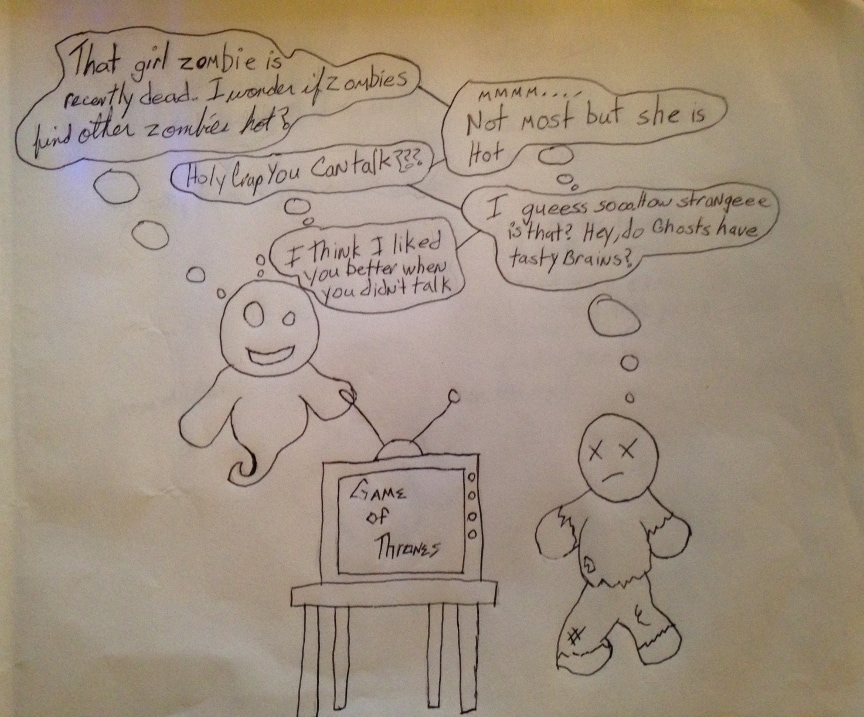 That girl zombie is
recently dead. I wonder if zombies
find other zombies hot?
MMMM....
Not most but she is
Hot
Holy Crap You Can talk???
I gueess soo.How strangeee
is that? Hey, do Ghosts have
tasty Brains?
I think I liked
you better when
you didn't talk
GAME
of
ThroNES